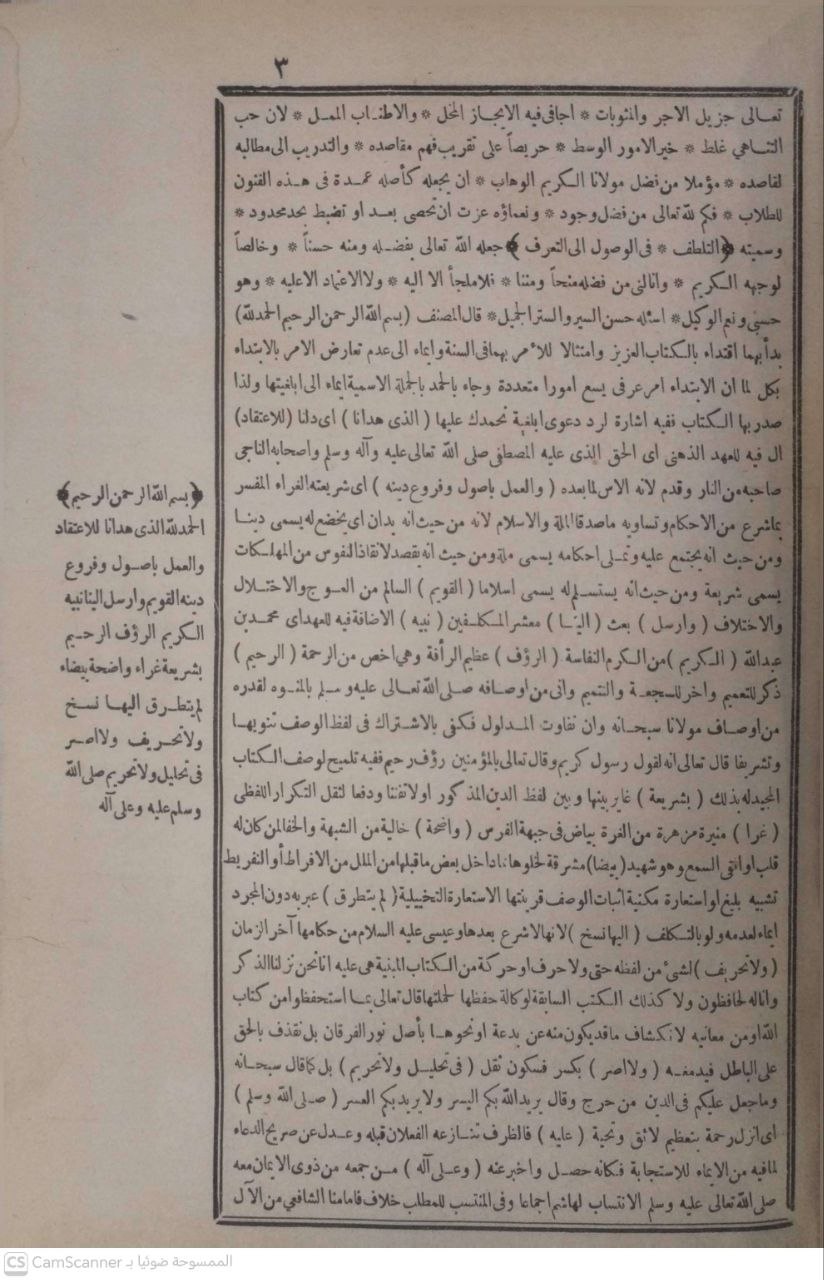 ٣
تعالى جزيل الاجر والمثوبات * اجافى فيه الايجاز المخل * والاطناب الممل * لان حب
التناهي غلط * خير الامور الوسط * حريصاً على تقريب فهم مقاصده * والتدريب الى مطالبه
لقاصده * مؤملا من فضل مولانا الكريم الوهاب * ان يجعله كأصله عمدة فى هذه الفنون
للطلاب * فكم لله تعالى من فضل وجود * ونعماؤه عزت ان تحصى بعد او تضبط بحد محدود *
وسميته ﴿التلطف * فى الوصول الى التعرف﴾ جعله الله تعالى بفضله ومنه حسناً * وخالصاً
لوجهه الكريم * وانالنى من فضله منحاً ومننا * فلا ملجأ الا اليه * ولا الاعتماد الا عليه * وهو
حسبى ونعم الوكيل * اسئله حسن السير والستر الجميل * قال المصنف (بسم الله الرحمن الرحيم الحمدلله)
بدأ بهما اقتداء بالكتاب العزيز وامتثالا للأمر بهما فى السنة وايماء الى عدم تعارض الامر بالابتداء
بكل لما ان الابتداء امر عرفى يسع امورا متعددة وجاء بالحمد بالجملة الاسمية ايماء الى ابلغيتها ولذا
صدر بها الكتاب ففيه اشارة لرد دعوى ابلغية نحمدك عليها ( الذى هدانا ) اى دلنا (للاعتقاد)
ال فيه للعهد الذهنى اى الحق الذى عليه المصطفى صلى الله تعالى عليه وآله وسلم واصحابه الناجى
صاحبه من النار وقدم لانه الاس لما بعده ( والعمل باصول وفروع دينه ) اى شريعته الغراء المفسر
بما شرع من الاحكام وتساويه ماصدقا الملة والاسلام لانه من حيث انه يدان اى يخضع له يسمى دينا
ومن حيث انه يجتمع عليه وتملى احكامه يسمى ملة ومن حيث انه يقصد لانقاذ النفوس من المهلكات
يسمى شريعة ومن حيث انه يستسلم له يسمى اسلاما ( القويم ) السالم من العوج والاختلال
والاختلاف ( وارسل ) بعث ( الينا ) معشر المكلفين ( نبيه ) الاضافة فيه للعهد اى محمد بن
عبدالله ( الكريم ) من الكرم النفاسة ( الرؤف ) عظيم الرأفة وهى اخص من الرحمة ( الرحيم )
ذكر للتعميم واخر للسجعة والتتميم واتى من اوصافه صلى الله تعالى عليه وسلم بالمنوه لقدره
من اوصاف مولانا سبحانه وان تفاوت المدلول فكفى بالاشتراك فى لفظ الوصف تنويها
وتشريفا قال تعالى انه لقول رسول كريم وقال تعالى بالمؤمنين رؤف رحيم ففيه تلميح لوصف الكتاب
المجيد له بذلك ( بشريعة ) غاير بينها وبين لفظ الدين المذكور اولا تفننا ودفعا لثقل التكرار اللفظى
( غرا ) منيرة مزهرة من الغرة بياض فى جبهة الفرس ( واضحة ) خالية من الشبهة والخفا لمن كان له
قلب او القى السمع وهو شهيد (بيضا) مشرقة لخلوها عما داخل بعض ما قبلها من الملل من الافراط أو التفريط
تشبيه بليغ او استعارة مكنية اثبات الوصف قرينتها الاستعارة التخييلية ( لم يتطرق ) عبر به دون المجرد
ايماء لعدمه ولو بالتكلف ( اليها نسخ ) لانها لا شرع بعدها وعيسى عليه السلام من حكامها آخر الزمان
( ولا تحريف ) لشئ من لفظه حتى ولا حرف او حركة من الكتاب المبنية هى عليه انا نحن نزلنا الذكر
وانا له لحافظون ولا كذلك الكتب السابقة لوكالة حفظها لحملتها قال تعالى بما استحفظوا من كتاب
الله او من معانيه لانكشاف ما قد يكون منه عن بدعة او نحوها بأصل نور الفرقان بل نقذف بالحق
على الباطل فيدمغه ( ولا اصر ) بكسر فسكون ثقل ( فى تحليل ولا تحريم ) بل كما قال سبحانه
وما جعل عليكم فى الدين من حرج وقال يريد الله بكم اليسر ولا يريد بكم العسر ( صلى الله وسلم )
اى انزل رحمة بتعظيم لائق وتحية ( عليه ) فالظرف تنازعه الفعلان قبله وعدل عن صريح الدعاء
لما فيه من الايماء للاستجابة فكانه حصل واخبر عنه ( وعلى آله ) من جمعه من ذوى الايمان معه
صلى الله تعالى عليه وسلم الانتساب لهاشم اجماعا وفى المنتسب للمطلب خلاف فامامنا الشافعي من الآل
﴿بسم الله الرحمن الرحيم﴾
الحمدلله الذى هدانا للاعتقاد
والعمل باصول وفروع
دينه القويم وارسل الينا نبيه
الكريم الرؤف الرحيم
بشريعة غراء واضحة بيضاء
لم يتطرق اليها نسخ
ولا تحريف ولا اصر
فى تحليل ولا تحريم صلى الله
وسلم عليه وعلى آله
CS CamScanner الممسوحة ضوئيا بـ